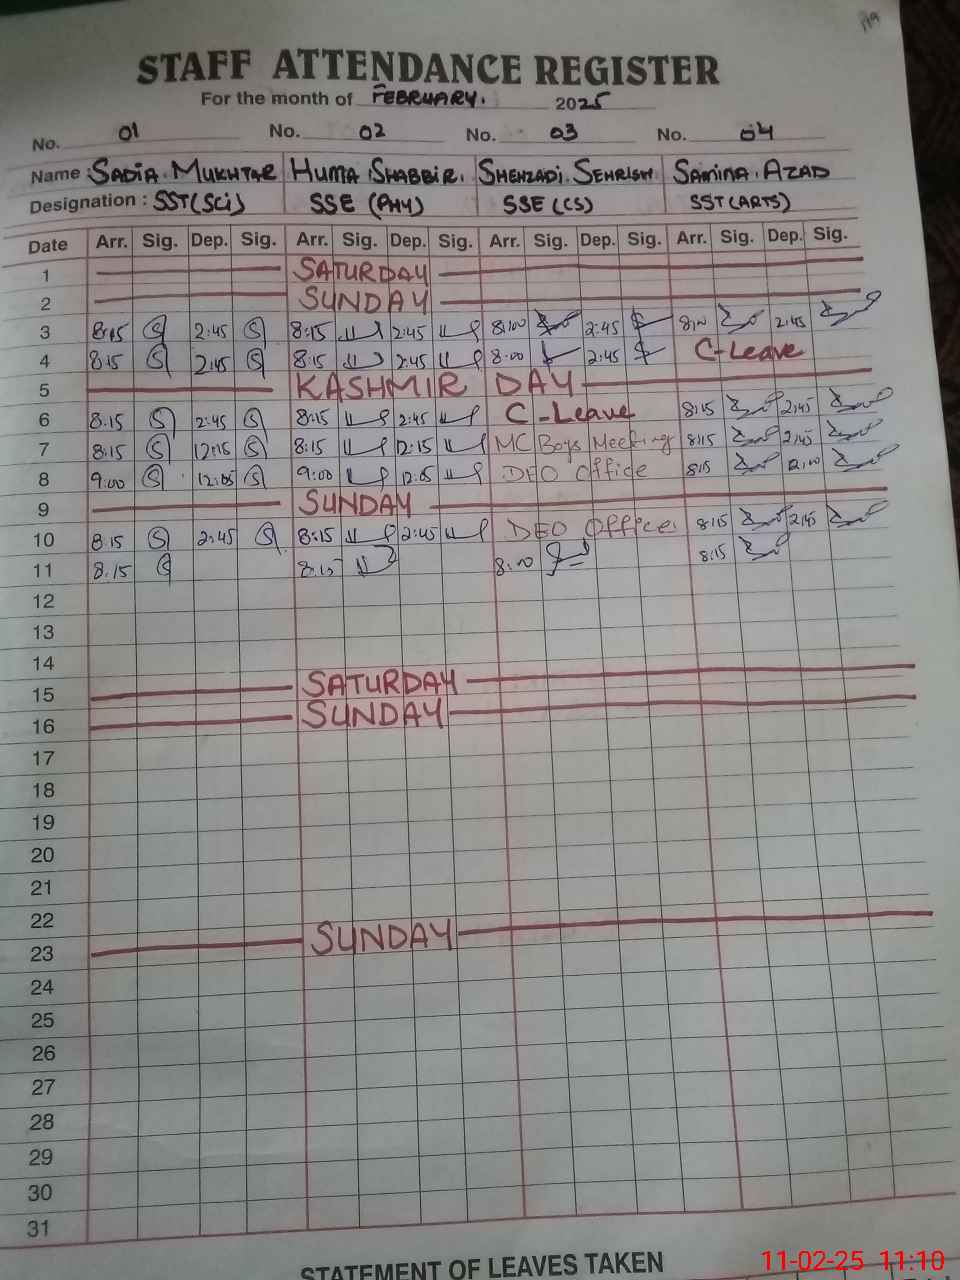 119
STAFF ATTENDANCE REGISTER
For the month of FEBRUARY. 2025
No. 01 No. 02 No. 03 No. 04
Name : SADIA MUKHTAR HUMA SHABBIR. SHEHZADI SEHRISH SAMINA AZAD
Designation : SST(SCi) SSE (PHY) SSE (CS) SST(ARTS)
Date Arr. Sig. Dep. Sig. Arr. Sig. Dep. Sig. Arr. Sig. Dep. Sig. Arr. Sig. Dep. Sig.
1 SATURDAY
2 SUNDAY
3 8:15 2:45 8:15 2:45 8:00 2:45 8:00 2:45
4 8:15 2:45 8:15 2:45 8:00 2:45 C-Leave
5 KASHMIR DAY
6 8:15 2:45 8:15 2:45 C-Leave 8:15 2:45
7 8:15 12:15 8:15 12:15 MC Boys Meeting 8:15 2:45
8 9:00 12:05 9:00 12:05 DEO Office 8:15 12:00
9 SUNDAY
10 8:15 2:45 8:15 2:45 DEO Office. 8:15 2:45
11 8:15 8:15 8:00 8:15
12
13
14
15 SATURDAY
16 SUNDAY
17
18
19
20
21
22
23 SUNDAY
24
25
26
27
28
29
30
31
STATEMENT OF LEAVES TAKEN
11-02-25 11:10